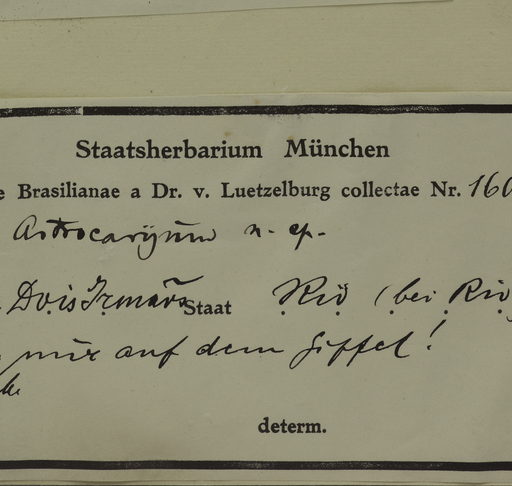 Staatsherbarium München
e Brasilianae a Dr. v. Luetzelburg collectae Nr. 160
Astrocaryum n. sp.
Dois Irmãos Staat Rio (bei Rio
nur auf dem Gipfel!
determ.